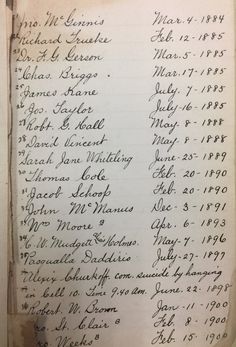 Jno. McGinnis Mar. 4-1884
Richard Truetke Feb. 12-1885
Dr. F. G. Gerson Mar. 5-1885
Chas. Briggs. Mar. 17-1885
25 James Kane July. 7-1885
26 Jos. Taylor July-16-1885
Robt. G. Hall May 8-1888
28 David Vincent May 8-1888
29 Sarah Jane Whiteling June-25-1889
30 Thomas Cole Feb. 20-1890
31 Jacob Schoop Feb. 20-1890
32 John McManus Dec-3-1891
33 Wm Moore Apr. 6-1893
34 C. W. Mudgett Holmes. May-7-1896
35 Pasqualla Daddurio July-27-1897
Chuskoff. com. suicide by hanging
in Cell 10. Time 9.40 a.m. June 22-1898
36 Robert. W. Brown Jan-11-1900
St. Clair Feb. 8-1900
Weeks Feb 15-1900